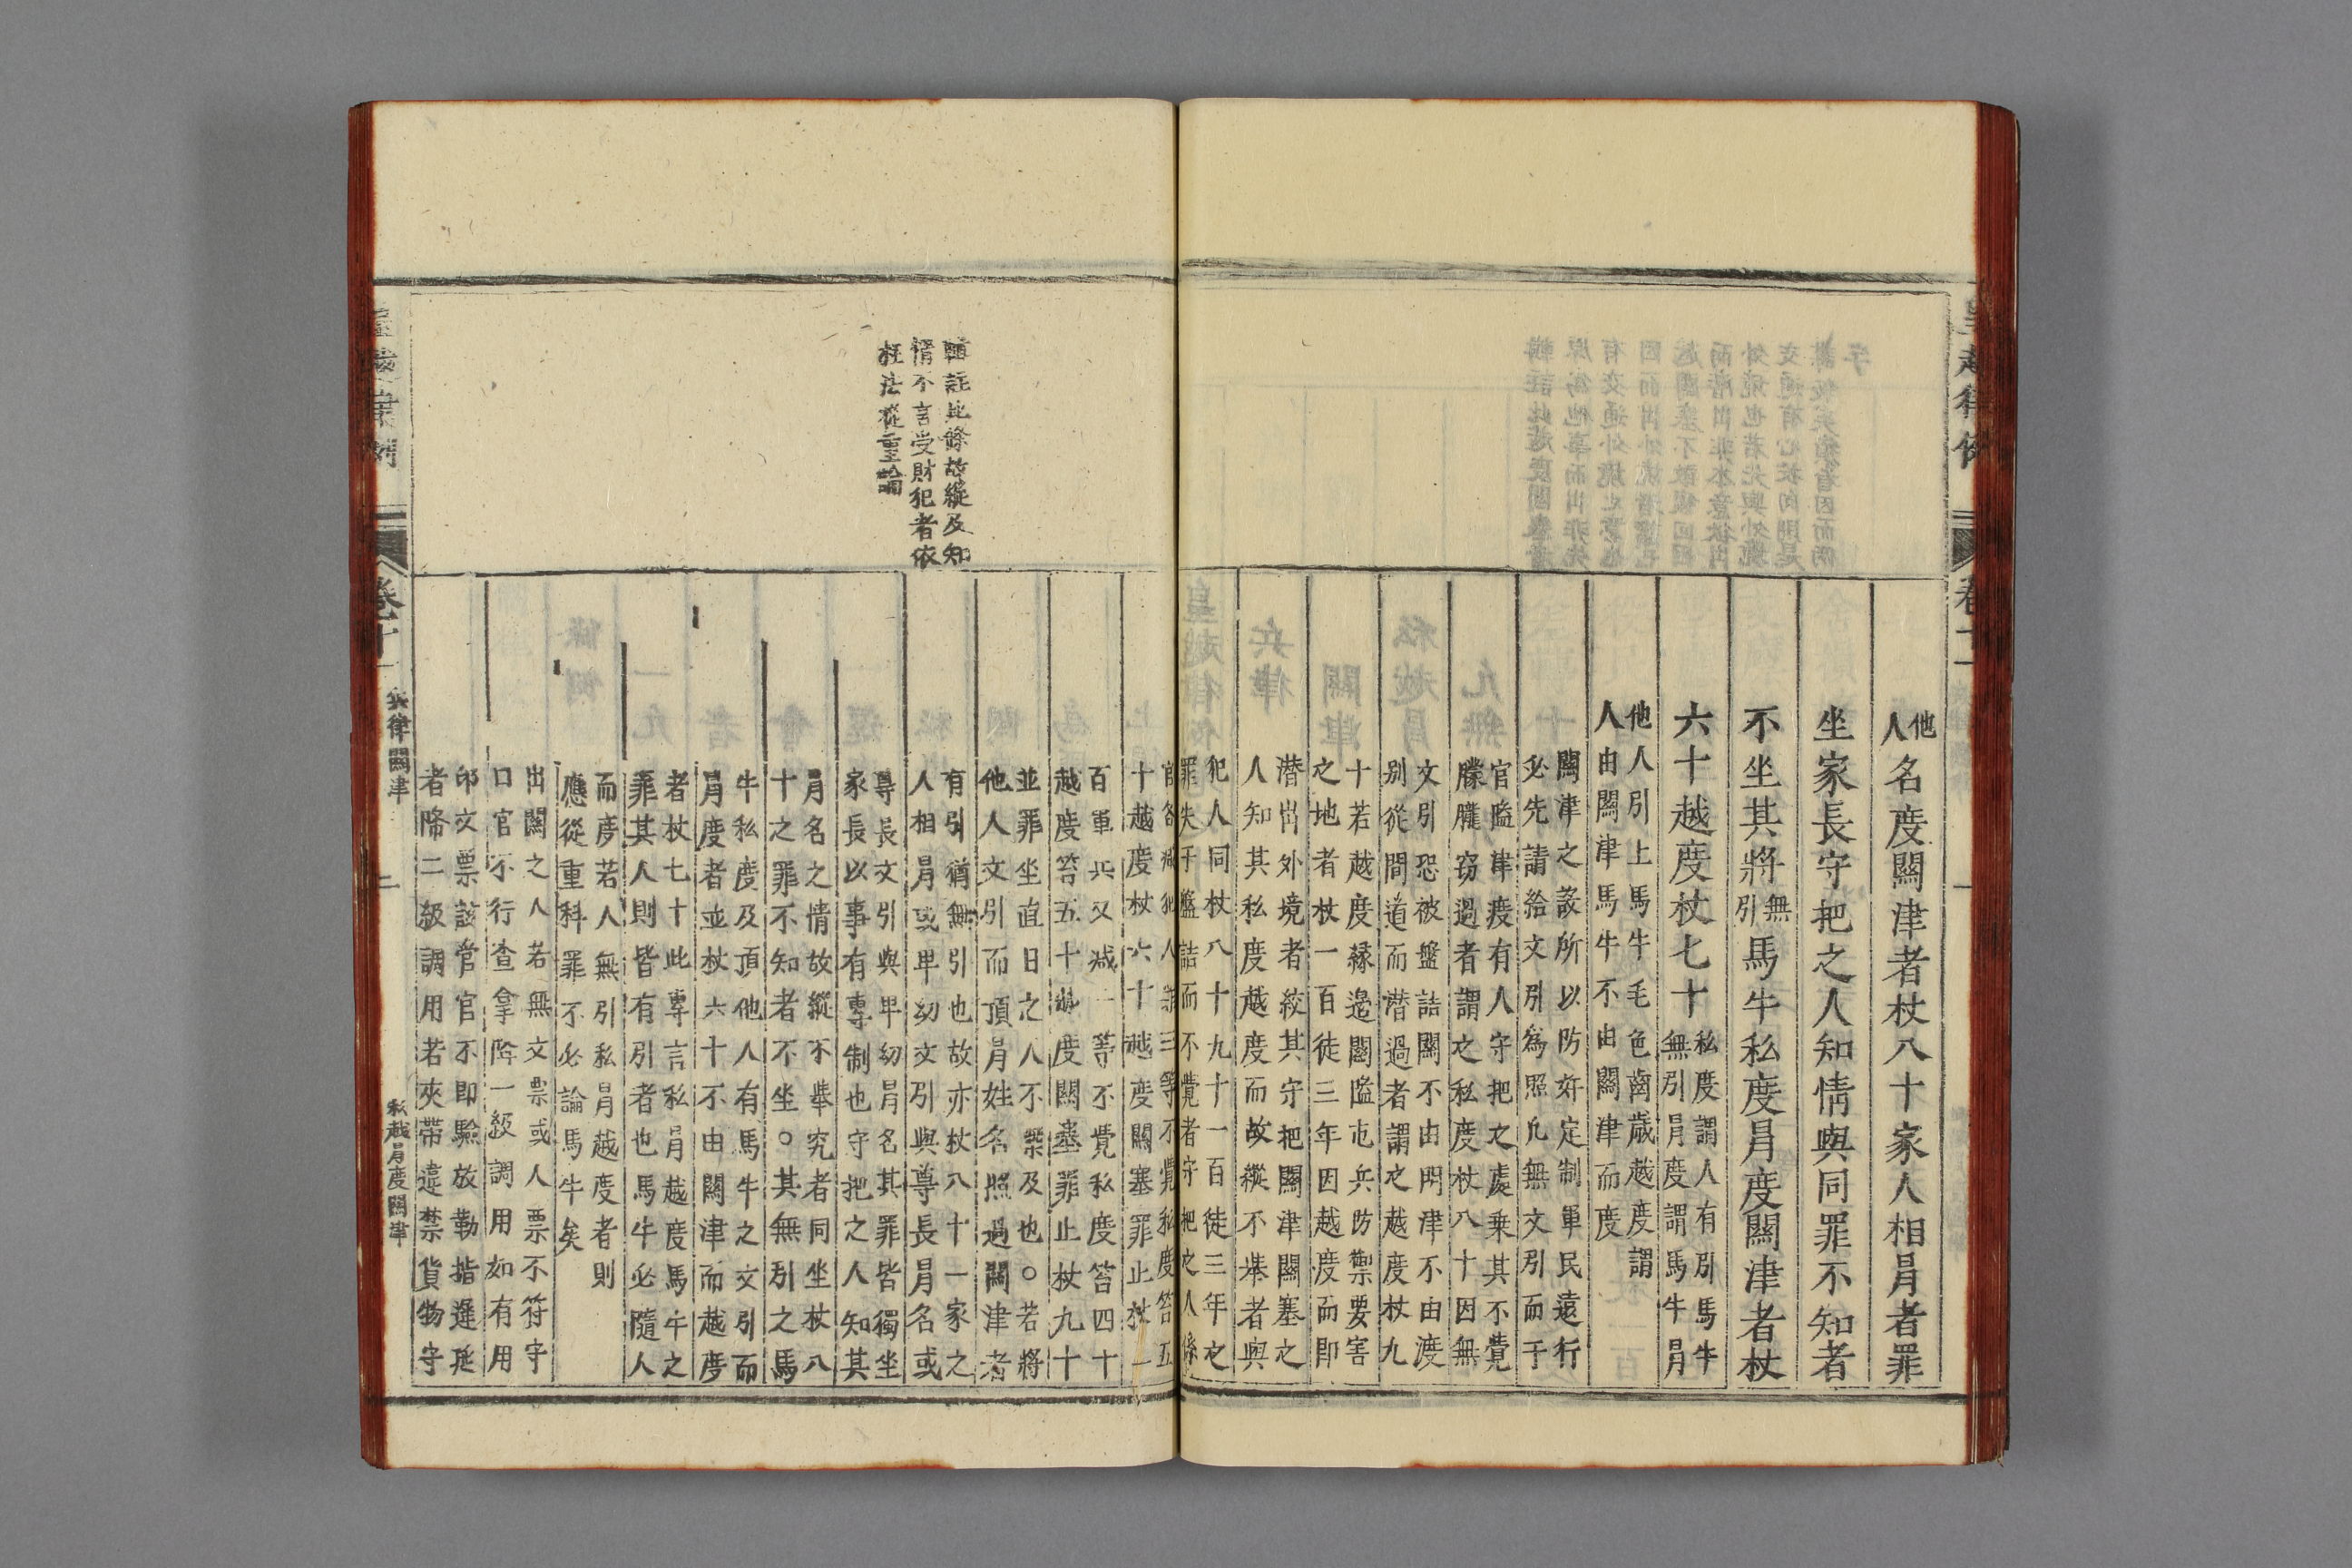 他人名度關津者杖八十家人相冐者罪
坐家長守把之人知情與同罪不知者
不坐其將無引馬牛私度冐度關津者杖
六十越度杖七十私度謂人有引馬牛
無引冐度謂馬牛冐
他人引上馬牛毛色齒歲越度謂
人由關津馬牛不由關津而度
關津之設所以防奸定制軍民遠行
必先請給文引爲照凡無文引而于
官隘津渡有人守把之處乗其不覺
朦朧窃過者謂之私度杖八十因無
文引恐被盤詰關不由門津不由渡
别從間道而潜過者謂之越度杖九
十若越度緣邊關隘屯兵防禦要害
之地者杖一百徒三年因越度而即
潜出外境者絞其守把關津關塞之
人知其私度越度而故縱不舉者與
犯人同杖八十九十一百徒三年之
罪失于盤詰而不覺者守把之人係
官各减犯人罪三等不覺私度笞五
十越度杖六十越度關塞罪止杖一
百軍兵又减一等不覺私度笞四十
越度笞五十越度關塞罪止杖九十
並罪坐直日之人不槩及也○若將
他人文引而頂冐姓名照過關津者
有引猶無引也故亦杖八十一家之
人相冐或卑幼文引與尊長冐名或
尊長文引與卑幼冐名其罪皆獨坐
家長以事有專制也守把之人知其
冐名之情故縱不舉究者同坐杖八
十之罪不知者不坐○其無引之馬
牛私度及頂他人有馬牛之文引而
冐度者並杖六十不由關津而越度
者杖七十此專言私冐越度馬牛之
罪其人則皆有引者也馬牛必隨人
而度若人無引私冐越度者則
應從重科罪不必論馬牛矣
出關之人若無文票或人票不符守
口官不行查拿降一級調用如有用
印文票該管官不即驗放勒措遲延
者降二級調用若夾帶違禁貨物守
輯註此條故縱及知
情不言受財犯者依
枉法從重論
卷十一
兵律關津
二
私越冐度關津